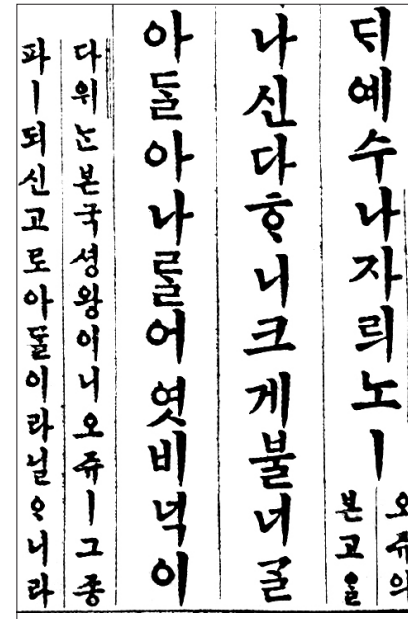 ᄃᆡ예수나자릐노ㅣ
오쥬의
본고을
나신다ᄒᆞ니크게불너ᄀᆞᆯ
아ᄃᆞᆯ아나ᄅᆞᆯ어엿비넉이
다위ᄂᆞᆫ본국셩왕이니오쥬ㅣ그종
파ㅣ되신고로아ᄃᆞᆯ이라닐ᄋᆞ니라